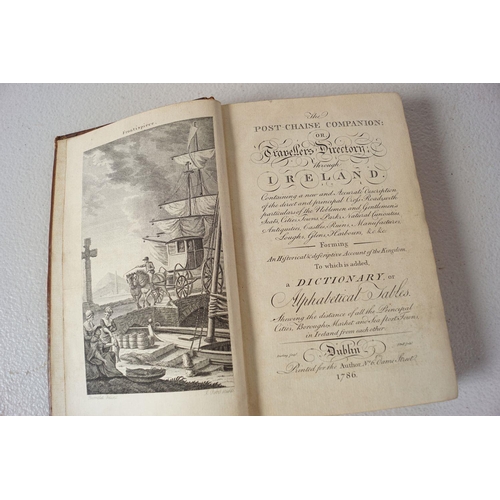 Frontispiece
The
POST-CHAISE COMPANION:
OR
Travellers Directory,
through
IRELAND.
Containing a new and Accurate Description
of the direct and principal Cross Roads, with
particulars of the Noblemen and Gentlemen's
Seats, Cities, Towns, Parks, Natural Curiosities
Antiquities, Castles, Ruins, Manufactures,
Loughs, Glens, Harbours, &c &c.
Forming
An Historical & descriptive Account of the Kingdom.
To which is added,
a DICTIONARY, or
Alphabetical Tables.
Shewing the distance of all the Principal
Cities, Boroughs, Market and Sea Port Towns,
in Ireland from each other.
Dublin
Printed for the Author, Dame Street
1786.